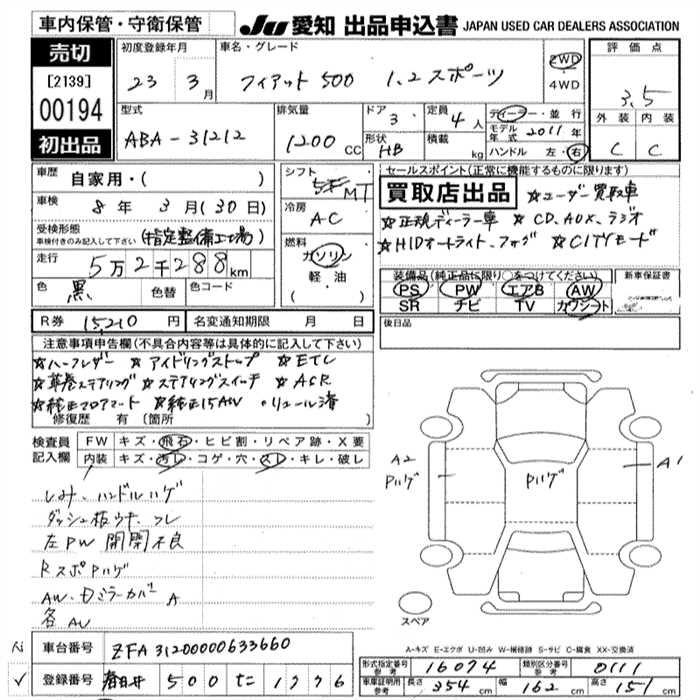 車内保管・守衛保管
JU 愛知 出品申込書 JAPAN USED CAR DEALERS ASSOCIATION
売切
[2139]
00194
初出品
初度登録年月
23 3月
車名・グレード
フィアット500 1.2スポーツ
2WD
4WD
評価点
3.5
外装 内装
C C
型式
ABA-31212
排気量
1200 cc
ドア 3
形状 HB
定員 4人
積載 kg
ディーラー・並行
モデル年式 2011年
ハンドル 左・右
車歴 自家用・( )
車検 8年 3月(30日)
受検形態
車検付きのみ記入して下さい
(指定整備工場)
走行 5万2千288km
色 黒 色替 色コード
シフト
MT
冷房
AC
燃料
ガソリン
軽・油
( )
セールスポイント(正常に機能するものに限ります)
買取店出品 ☆ユーザー買取車
☆正規ディーラー車 ☆CD、AUX、ラジオ
☆HIDオートライト、フォグ ☆CITYモード
装備品(純正品に限り○をつけてください)
PS PW エアB AW
SR ナビ TV カワシート
新車保証書
R券 15210円 名変通知期限 月 日
後日品
注意事項申告欄(不具合内容等は具体的に記入して下さい)
☆ハーフレザー ☆アイドリングストップ ☆ETC
☆革巻ステアリング ☆ステアリングスイッチ ☆ASR
☆純正フロアマート ☆純正15AW ・リコール済
修復歴 有 (箇所
検査員
記入欄
FW キズ・飛石・ヒビ割・リペア跡・X要
内装 キズ・汚レ・コゲ・穴・スレ・キレ・破レ
シミ・ハンドルハゲ
ダッシュ板ウキ、フレ
左PW 開閉不良
RスポPハゲ
AW・ドミラーカバー A
各AU
A2
Pハゲ
Pハゲ
A1
スペア
A-キズ E-エクボ U-凹み W-補修跡 S-サビ C-腐食 XX-交換済
車台番号 ZFA31200000633660
登録番号 春日井 500 た 1776
形式指定番号
参考
16074
類別区分番号
参考
0111
車庫証明用
参考
長さ 354cm 幅 162cm 高さ 151cm